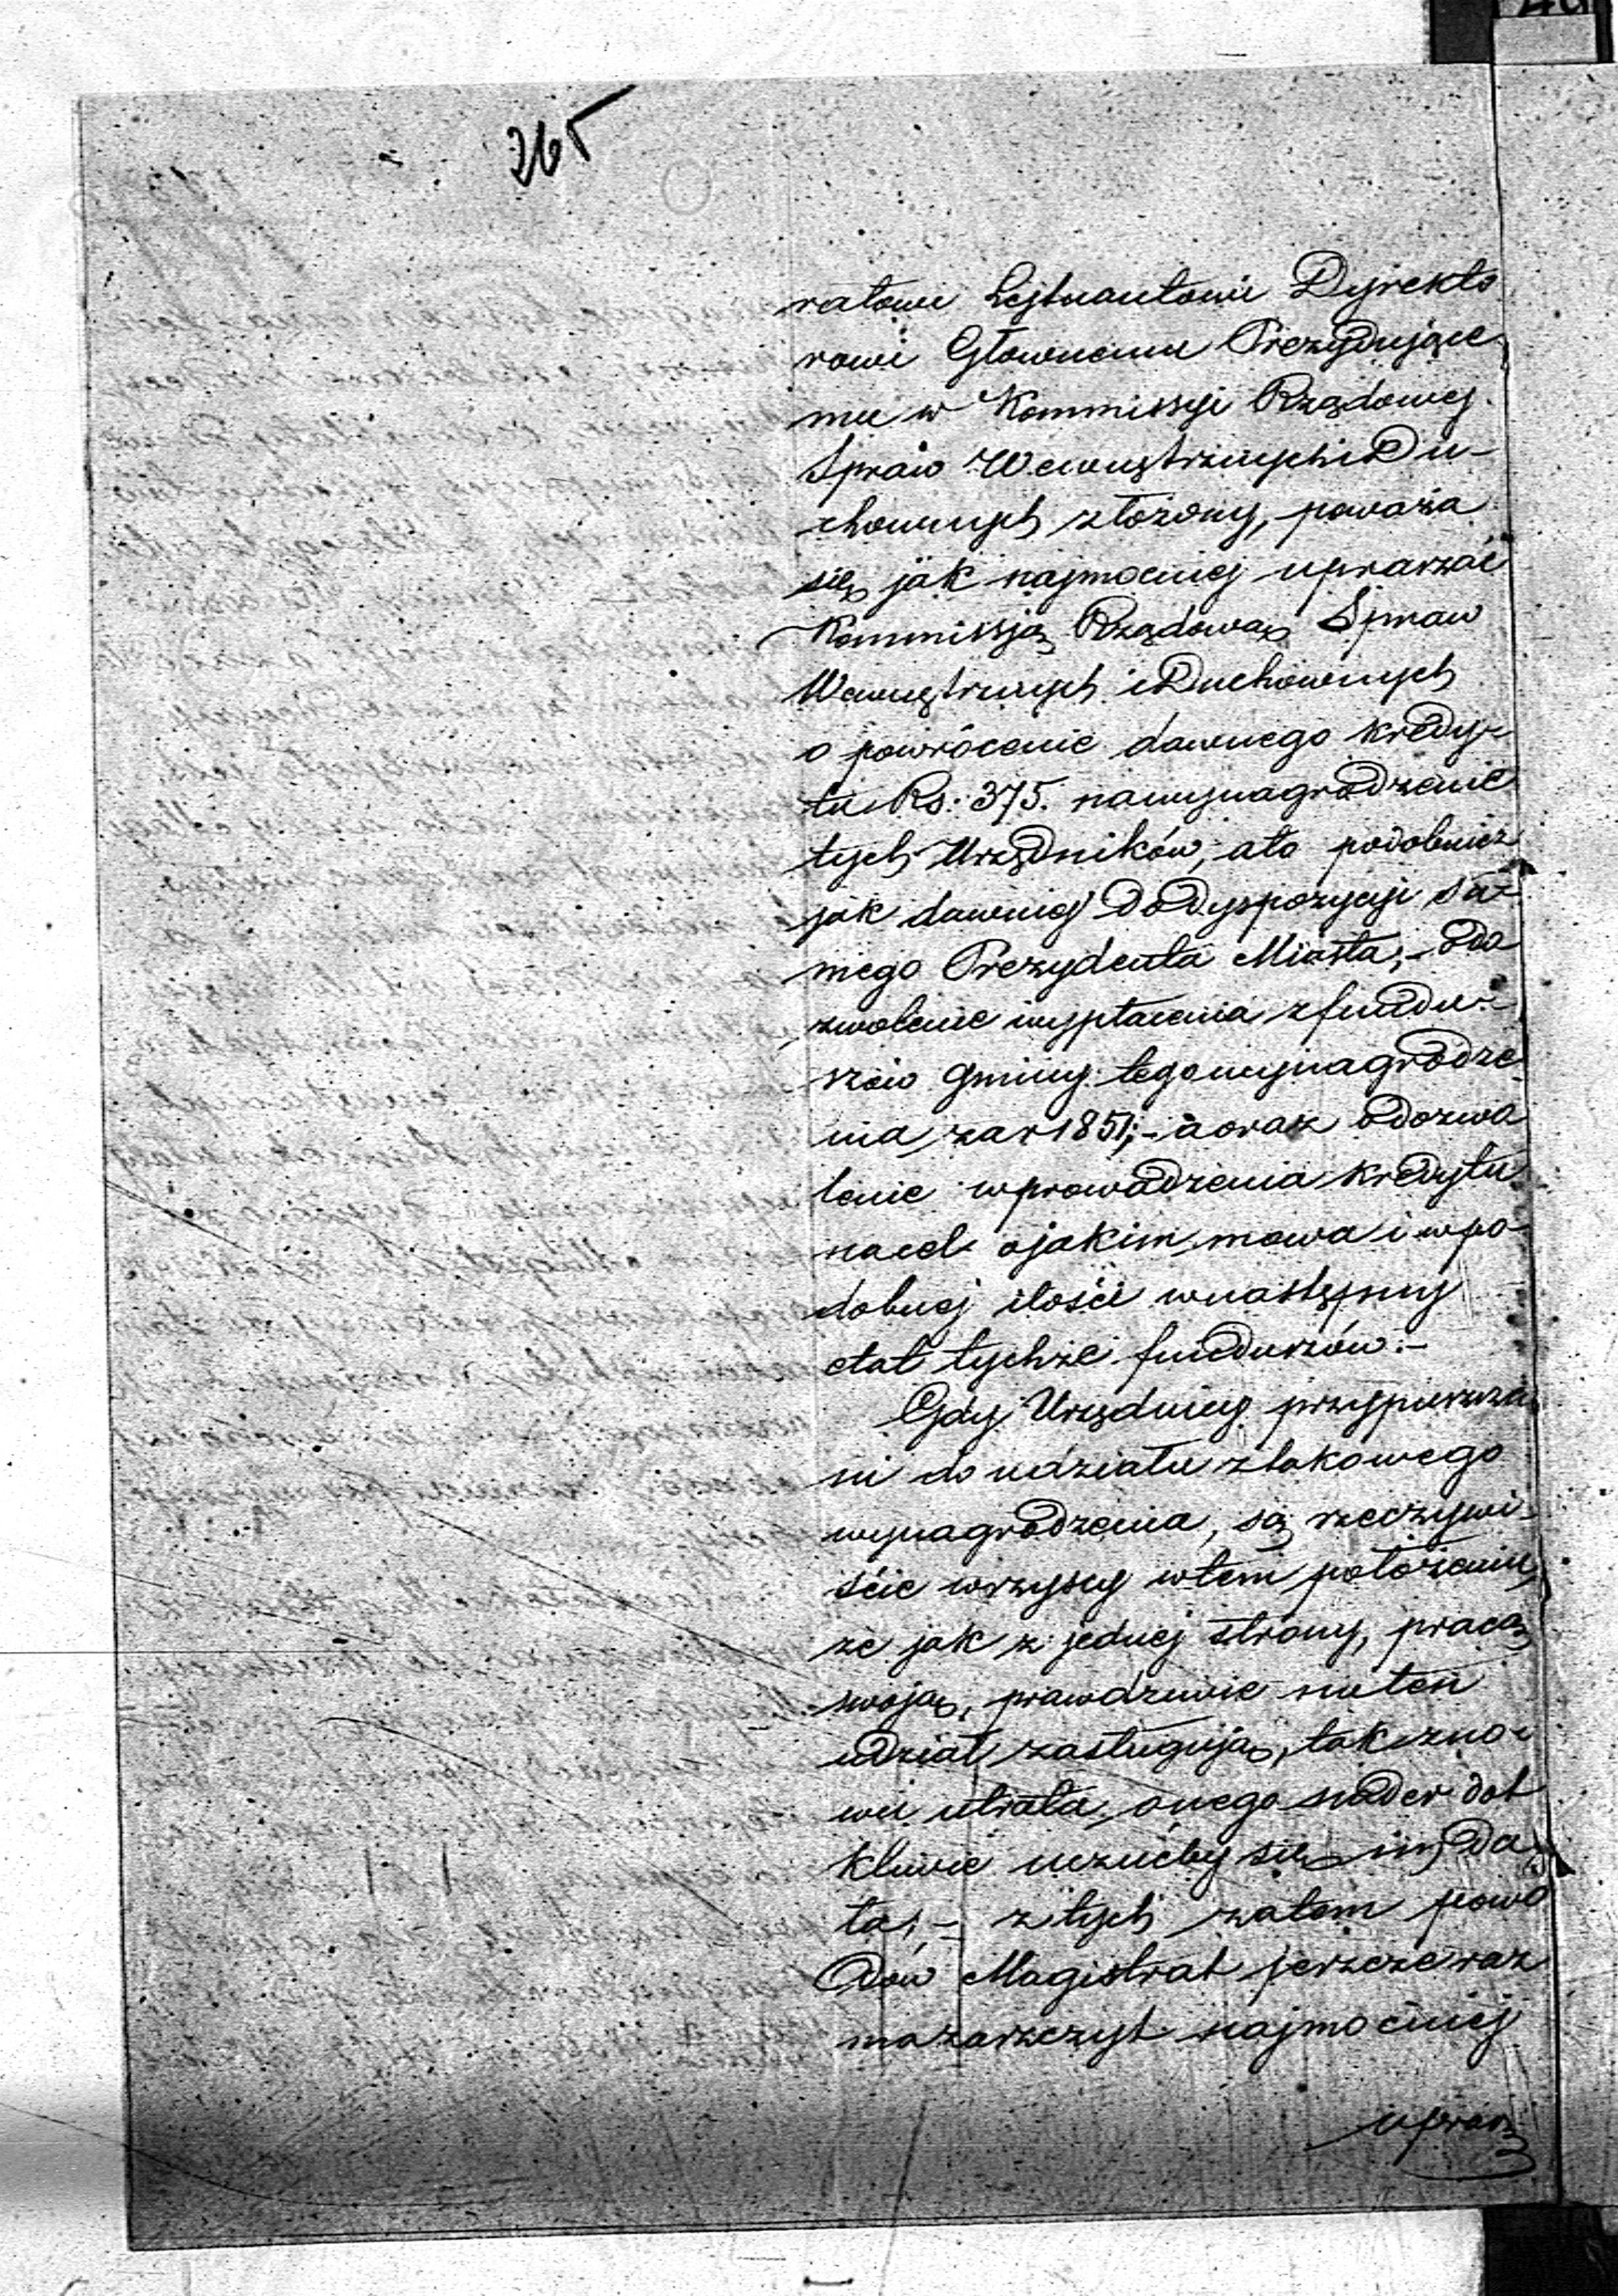 265
ratowi Lejtnantowi Dyrekto
rowi Głownemu Prezydujące
mu w Kommissyi Rządowej
Spraw Wewnętrznych i Du-
chownych złożony, poważa
się jak najmocniej upraszać
Kommissją Rządową Spraw
Wewnętrznych i Duchownych
o powrócenie dawnego kredy-
tu Rs: 375. na wynagrodzenie
tych Urzędników, a to podobnież
jak dawniej do dyspozycyi sa-
mego Prezydenta Miasta; - do
zwolenie wypłacenia z fundu-
szów gminy tego wynagrodze
nia za r 1851; - a oraz o dozwo
lenie wprowadzenia kredytu
nacel o jakim mowa i w po-
dobnej ilości w następny
etat tychże funduszów. -
Gdy Urzędnicy przypuszcza
ni do udziału z takowego
wynagrodzenia, są rzeczywi-
ście wszyscy w tem położeniu,
że jak z jednej strony, pracą
swoją, prawdziwie na ten
udział zasługują, tak zno-
wu utrata onego nader dot
kliwie uczućby się im da
ła; - z tych zatem powo
dów Magistrat jeszcze raz
ma zaszczyt najmocniej
uprasz